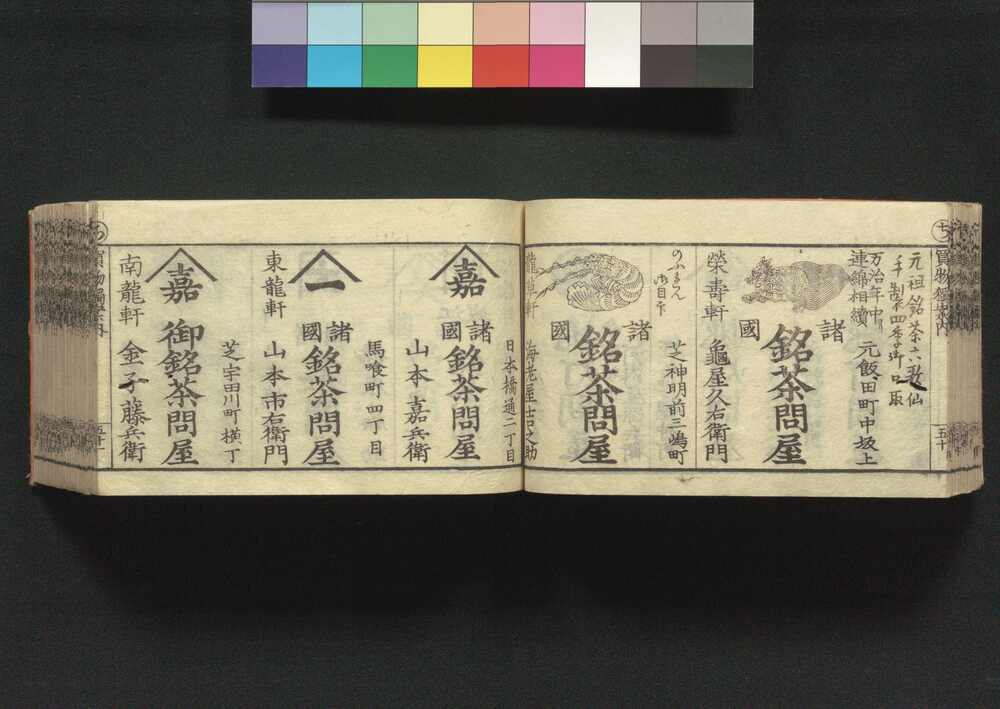 ち
買物獨案内
五十
元祖銘茶六歌仙
万治年中ゟ
連綿相續
元飯田町中坂上
諸國
銘茶問屋
榮壽軒
龜屋久右衛門
芝神明前三嶋町
諸國
銘茶問屋
龍草軒
海老屋吉之助
日本橋通二丁目
嘉
諸國
銘茶問屋
山本嘉兵衛
馬喰町四丁目
一
諸國
銘茶問屋
東龍軒
山本市右衛門
芝宇田川町横丁
嘉
御銘茶問屋
南龍軒
金子藤兵衛
買物獨案内
五十一